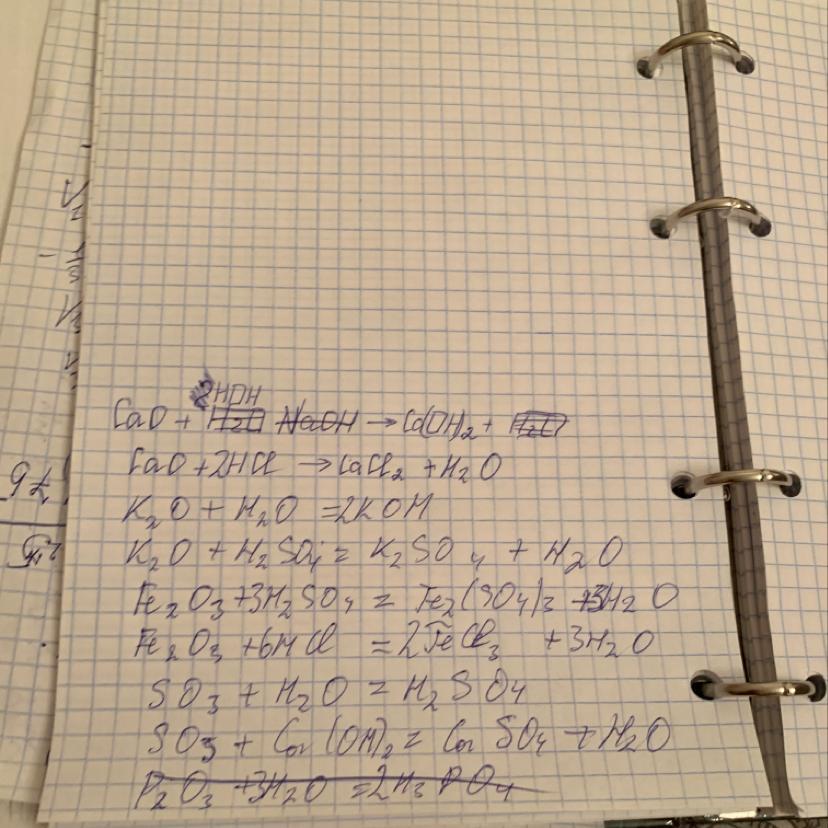 CaO + HOH → Ca(OH)₂ +
CaO + 2HCl → CaCl₂ + H₂O
K₂O + H₂O = 2KOH
K₂O + H₂SO₄ = K₂SO₄ + H₂O
Fe₂O₃ + 3H₂SO₄ = Fe₂(SO₄)₃ + 3H₂O
Fe₂O₃ + 6HCl = 2FeCl₃ + 3H₂O
SO₃ + H₂O = H₂SO₄
SO₃ + Ca(OH)₂ = CaSO₄ + H₂O
P₂O₃ + 3H₂O = 2H₃PO₄